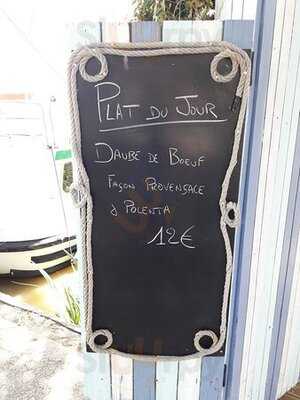 PLAT DU JOUR
DAUBE DE BOEUF
FAÇON PROVENSACE
& POLENTA
12€